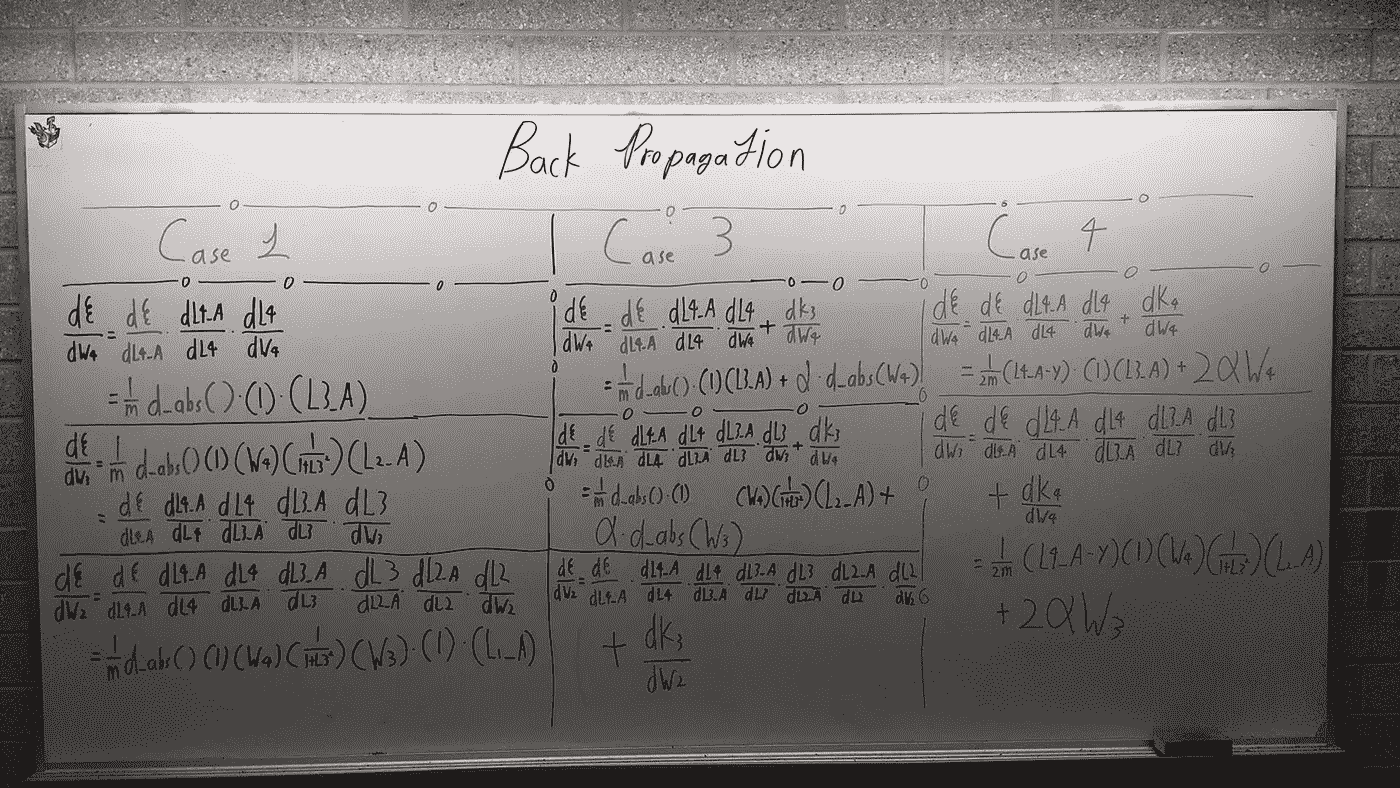 Back Propagation
Case 1
dE/dW4 = dE/dL4_A · dL4_A/dL4 · dL4/dW4
= 1/m d_abs()·(1)·(L3_A)
dE/dW3 = 1/m d_abs()(1)(W4)(1/1+L3²)(L2_A)
= dE/dL4_A · dL4_A/dL4 · dL4/dL3_A · dL3_A/dL3 · dL3/dW3
dE/dW2 = dE/dL4_A · dL4_A/dL4 · dL4/dL3_A · dL3_A/dL3 · dL3/dL2_A · dL2A/dL2 · dL2/dW2
= 1/m d_abs()(1)(W4)(1/1+L3²)(W3)·(1)·(L1_A)
Case 3
dE/dW4 = dE/dL4_A · dL4_A/dL4 · dL4/dW4 + dk3/dW4
= 1/m d_abs()·(1)(L3_A) + α·d_abs(W4)
dE/dW3 = dE/dL4_A · dL4_A/dL4 · dL4/dL3_A · dL3_A/dL3 · dL3/dW3 + dk3/dW4
= 1/m d_abs()·(1) (W4)(1/1+L3²)(L2_A) +
α·d_abs(W3)
dE/dW2 = dE/dL4_A · dL4_A/dL4 · dL4/dL3_A · dL3_A/dL3 · dL3/dL2_A · dL2_A/dL2 · dL2/dW2
+ dk3/dW2
Case 4
dE/dW4 = dE/dL4_A · dL4_A/dL4 · dL4/dW4 + dK4/dW4
= 1/2m (L4_A-Y)·(1)(L3_A) + 2αW4
dE/dW3 = dE/dL4_A · dL4_A/dL4 · dL4/dL3_A · dL3_A/dL3 · dL3/dW3
+ dK4/dW4
= 1/2m (L4_A-Y)(1)(W4)(1/1+L3²)(L2_A)
+ 2αW3